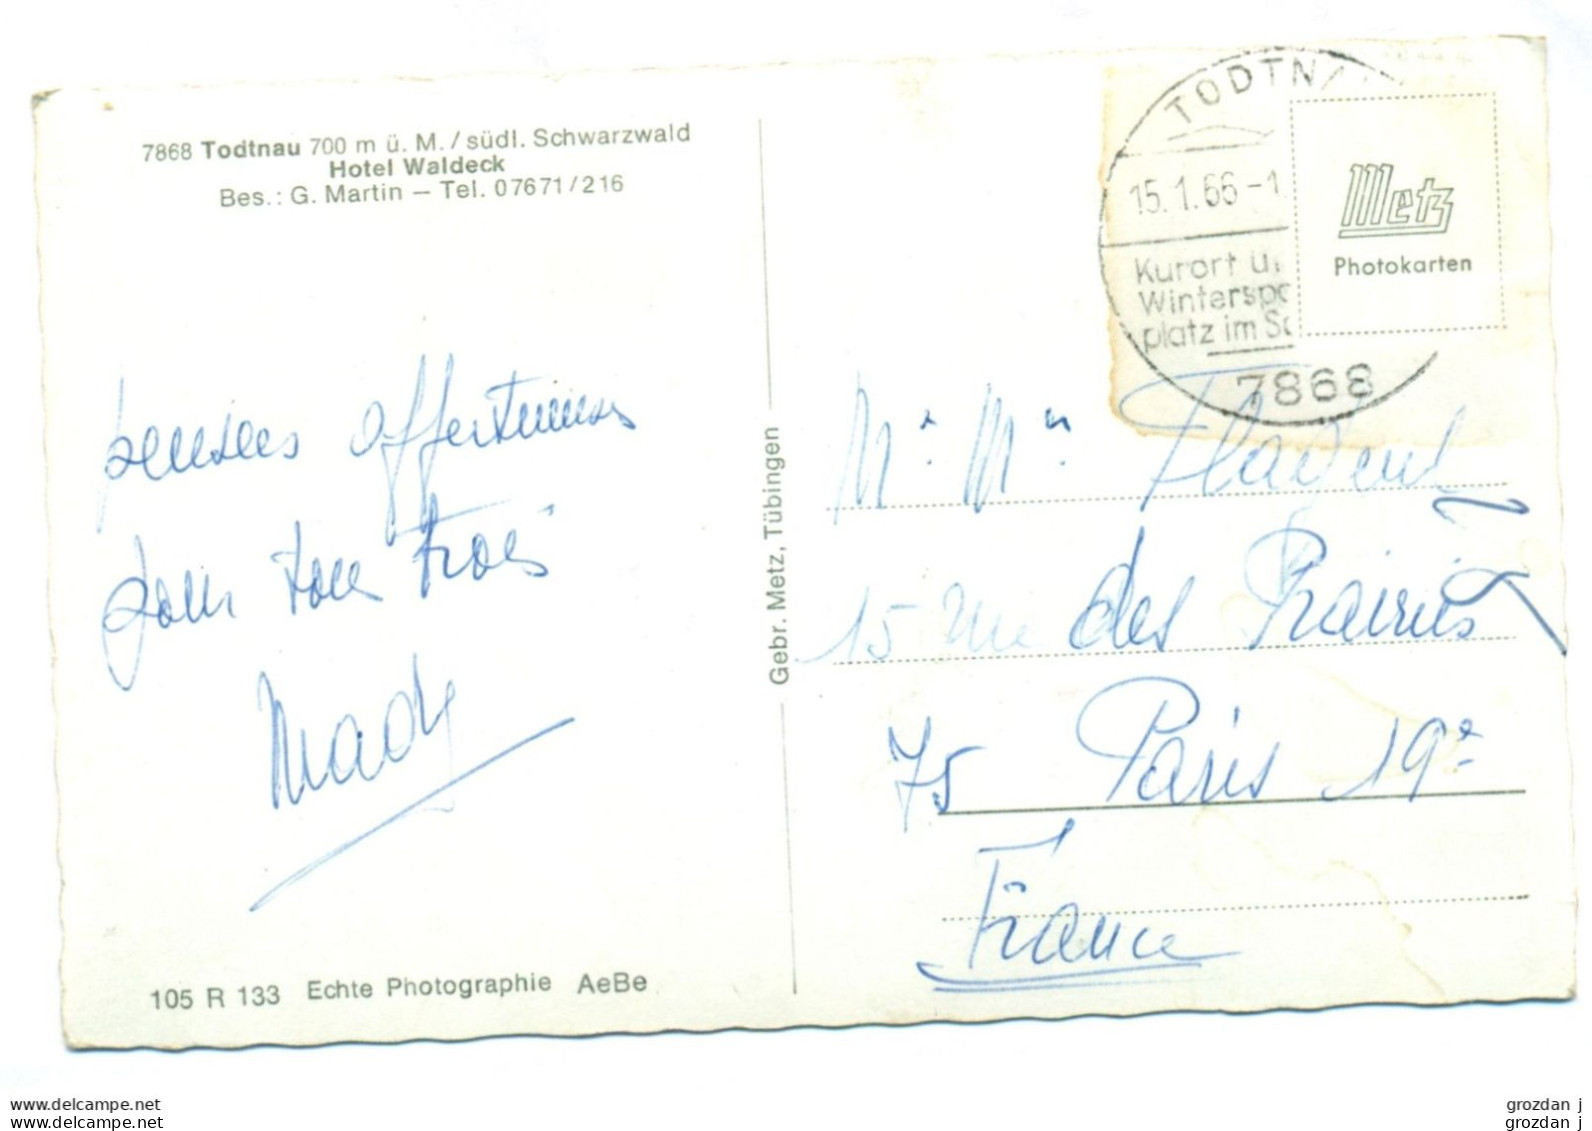 7868 Todtnau 700 m ü. M. / südl. Schwarzwald
Hotel Waldeck
Bes.: G. Martin – Tel. 07671/216
pensées affectueuses
pour tous trois
Mady
105 R 133 Echte Photographie AeBe
Gebr. Metz, Tübingen
TODTN
15.1.66-1
Kurort u.
Winterspo
platz im Sc
7868
Metz
Photokarten
Mr. Mme
15 rue des Prairies
75 Paris 19e
France
www.delcampe.net
www.delcampe.net
grozdan j
grozdan j